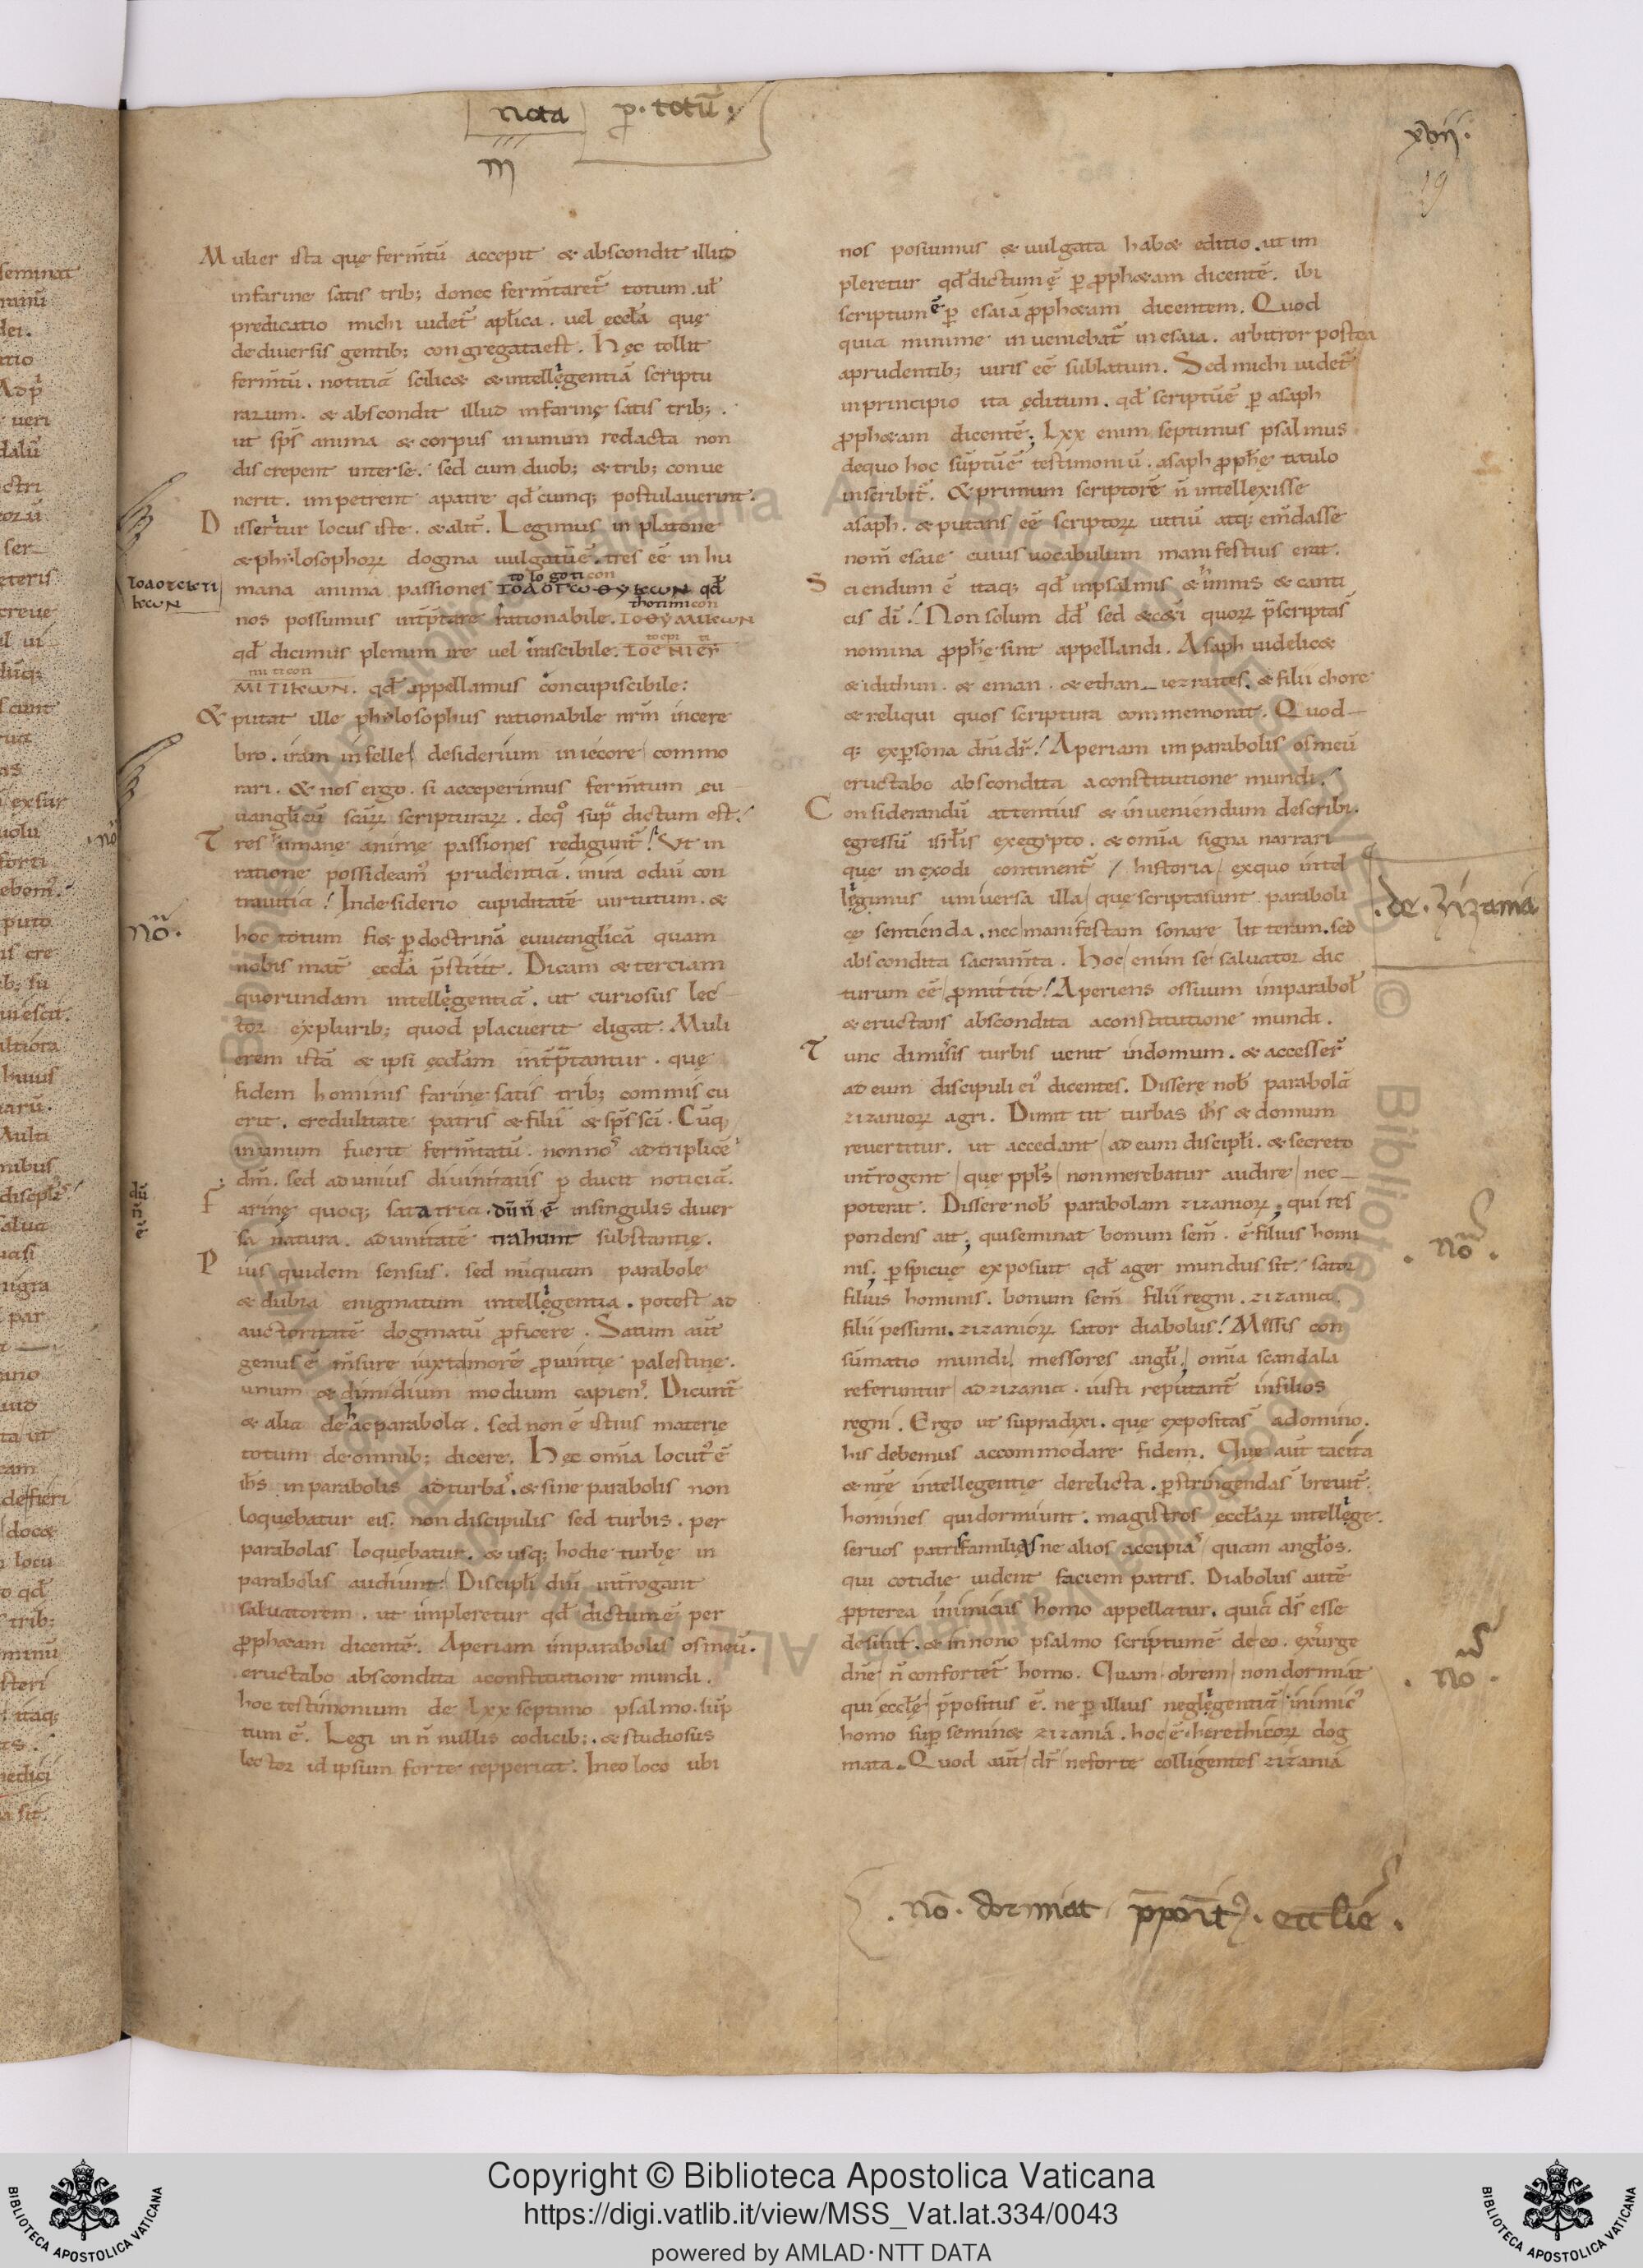 nota p̲. totũ.
m
xvii.
19
Mulier ista quę ferm̃tũ accepit & abscondit illud
infarinę satis trib; donec ferm̃taret᷑ totum. uł
predicatio michi uidet᷑ apłica. uel eccła quę
dediuersis gentib; congregataest. Hęc tollit
ferm̃tũ. notitiã scilic& & intellęgentiã scriptu
rarum. & abscondit illud infarinę satis trib;.
ut sp̃s anima & corpus inunum redacta non
discrepent interse. sed cum duob; & trib; conue
nerit. impetrent apatre qđcumq; postulauerint.
Dissertur locus iste. & alit᷑. Legimus in platone
& philosophoꝝ dogma uulgatũ ẽ. tres eẽ in hu
mana anima passiones ΤΟΛΟΓΙΟΘΥΚΩΝ qđ
to lo go ti con
nos possumus int̃p̃tare rationabile. ΤΟΘΥΜΙΚΩΝ
thotimicon
qđ dicimus plenum irę uel irascibile. ΤΟΕΠΙΕΥ
to epi ti
ΜΙΤΙΚΩΝ. qđ appellamus concupiscibile:
mi ti con
& putat ille philosophus rationabile nr̃m incere
bro. iram infelle desiderium iniecore commo
rari. & nos ergo. si acceperimus ferm̃tum eu
uanglicũ sc̃aꝝ scripturaꝝ. deq̊ sup̃ dictum est.
Tres humanę animę passiones redigunt᷑. Vt in
ratione possideam᷒ prudentiã. inira odiũ con
trauitia. Indesiderio cupiditatẽ uirtutum. &
hoc totum fi& p̲doctrinã euuanglicã quam
nobis mat᷑ eccła p̃stitit. Dicam & terciam
quorundam intellęgentiã. ut curiosus lec
tor explurib; quod placuerit eligat. Muli
erem istã & ipsi eccłam int̃p̃tantur. quę
fidem hominis farinę satis trib; commiscu
erit. credulitate patris & filii & sp̃s sc̃i. Cũq;
inunum fuerit ferm̃tatũ. nonno᷒ adtriplicẽ
dm̃. sed adunius diuinitatis p̲ducit noticiã.
Farinę quoq; sata tria. dũ ñ ẽ insingulis diuer
sa natura. adunitatẽ trahunt substantię.
Pius quidem sensus. sed nũquam parabolę
& dubia enigmatum intellęgentia. potest ad
auctoritatẽ dogmatũ ꝓficere. Satum aũt
genus ẽ m̃sure iuxtamorẽ ꝓuintię palestinę.
unum & dimidium modium capiens. Dicunt᷑
& alia de hac parabola. sed non ẽ istius materię
totum de omnib; dicere. Hęc om̃ia locut᷒ ẽ
ih̃s in parabolis adturbas. & sine parabolis non
loquebatur eis. non discipulis sed turbis. per
parabolas loquebatur. & usq; hodie turbę in
parabolis audiunt. Discipłi dñi int̃rogant
saluatorem. ut impleretur qđ dictum ẽ per
ꝓph&am dicentẽ. Aperiam inparabolis osmeũ.
eructabo abscondita aconstitutione mundi.
hoc testimonium de Lxx septimo psalmo. sũp
tum ẽ. Legi in ñ nullis codicib;. & studiosus
lector idipsum forte reppeĩat. Ineo loco ubi
ΤΟΛΟΤΕΙΚΤΙ
ΚΩΝ
nõ.
dũ
ñ
ẽ
nos posuimus & uulgata hab& editio. ut im
pleretur qđdictum ẽ p̲ ꝓph&am dicentẽ. ibi
scriptum ẽ p̲ esaiã ꝓph&am dicentem. Quod
quia minime inueniebat᷑ inesaia. arbitror postea
aprudentib; uiris eẽ sublatum. Sed michi uidet᷑
inprincipio ita ęditum. qđ scriptũ ẽ p̲ asaph
ꝓph&am dicentẽ; Lxx enim septimus psalmus
dequo hoc sũptũ ẽ testimoniũ. asaph ꝓph̃ę titulo
inscribit᷑. & primum scriptorẽ ñ intellexisse
asaph. & putans eẽ scriptoꝝ uitiũ atq; em̃dasse
nom̃ esaię cuius uocabulum manifestius erat.
Sciendum ẽ itaq; qđ inpsalmis & hymnis & canti
cis dĩ. Non solum dđ sed & c&ĩ quoꝝ p̃scriptas̃
nomina ꝓph̃ę sint appellandi. Asaph uidelic&
& idithun. & eman. & ethan_iezraites. & filii chore
& reliqui quos scriptura commemorat. Quod
q; exp̲sona dñi dr̃. Aperiam inparabolis osmeũ
eructabo abscondita aconstitutione mundi.
Considerandũ attentius & inueniendum describi.
egressũ isrłis exegypto. & om̃ia signa narrari
quę inexodi continent᷑ / historia exquo intel
lęgimus uniuersa illa quę scriptasunt. paraboli
cę sentienda. nec manifestam sonare litteram. sed
abscondita sacram̃ta. Hoc enim se saluator dic
turum eẽ ꝓmittit. Aperiens ossuum inparaboł
& eructans abscondita aconstitutione mundi.
Tunc dimissis turbis uenit indomum. & accesser̃
ad eum discipuli ei᷒ dicentes. Disserę nob̃ parabolã
zizanioꝝ agri. Dimittit turbas ih̃s & domum
reuertitur. ut accedant ad eum discipłi. & secreto
int̃rogent quę ppłs nonmerebatur audire nec_
poterat. Disserę nob̃ parabolam zizanioꝝ, qui res
pondens ait; quiseminat bonum sem̃. ẽ filius homi
nis. p̲spicuę exposuit qđ ager mundus sit. sator
filius hominis. bonum sem̃ filii regni. zizania.
filii pessimi. zizanioꝝ sator diabolus. Messis con
sũmatio mundi. messores angłi. om̃ia scandala
referuntur ad zizania. iusti reputant᷑ infilios
regni. Ergo ut supradixi. quę expositas̃ adomino.
his debemus accommodare fidem. Quę aũt tacita
& nr̃ę intellegentię derelicta. p̲stringendas̃ breuit᷑.
homines quidormiunt. magistros eccłaꝝ intellęge.
seruos patrisfamilias ne alios accipias quam angłos.
qui cotidię uident faciem patris. Diabolus autẽ
ꝓpterea inimicus homo appellatur. quia ds̃ esse
desiuit. & innono psalmo scriptum ẽ de eo. exsurge
dñe ñ confortet᷑ homo. Quam obrem non dormiat
qui eccłę p̃positus ẽ. ne p̲ illius neglęgentiã inimic᷒
homo sup̲semin& zizaniã. hoc ẽ herethicoꝝ dog
mata. Quod aũt dr̃ neforte colligentes zizaniã
.de. zizania
.nõ.
.nõ.
.nõ. dormiat p̃po᷒it᷒. ecclie.
Copyright © Biblioteca Apostolica Vaticana
https://digi.vatlib.it/view/MSS_Vat.lat.334/0043
powered by AMLAD·NTT DATA
BIBLIOTECA APOSTOLICA VATICANA
BIBLIOTECA APOSTOLICA VATICANA